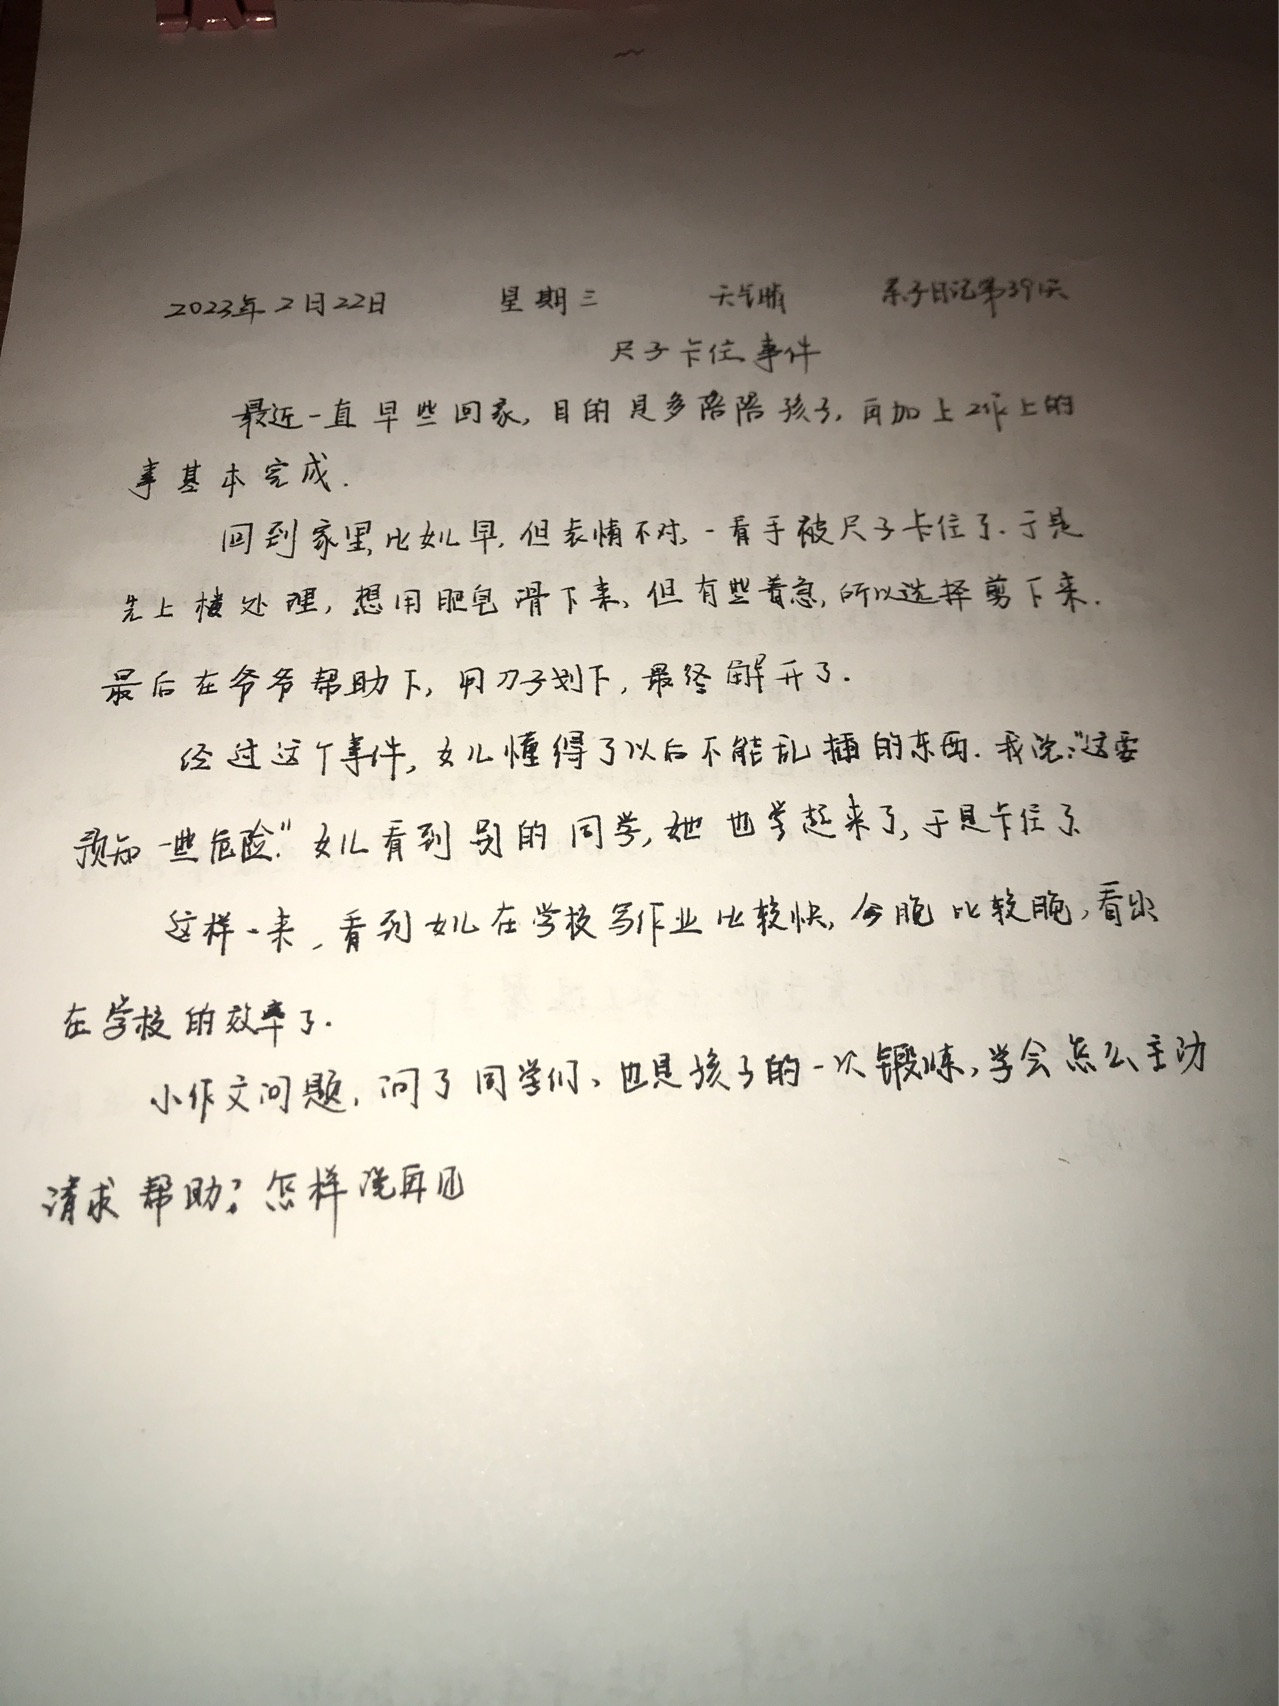 2023年2月22日 星期三 天气晴 亲子日记第39天
尺子卡住事件
最近一直早些回家,目的是多陪陪孩子,再加上工作上的
事基本完成.
回到家里,比女儿早,但表情不对,一看手被尺子卡住了.于是
先上楼处理,想用肥皂滑下来,但有些着急,所以选择剪下来.
最后在爷爷帮助下,用刀子划下,最终解开了.
经过这个事件,女儿懂得了以后不能乱插的东西.我说:"这要
预知一些危险."女儿看到别的同学,她也学起来了,于是卡住了
这样一来,看到女儿在学校写作业比较快,比较,看出
在学校的效率了.
小作文问题,问了同学们,也是孩子的一次锻炼,学会怎么主动
请求帮助;怎样说再见